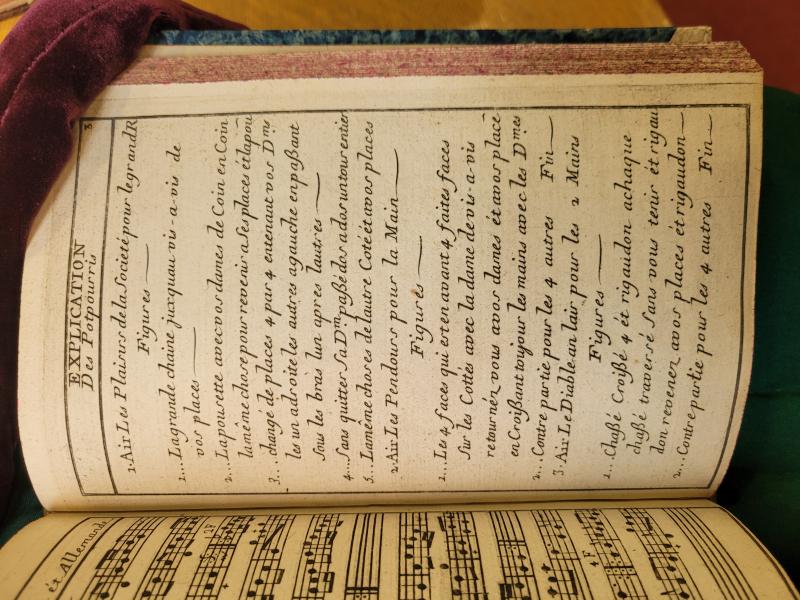 3
EXPLICATION
Des Potpourris
1. Air Les Plaisirs de la Societé pour le grand R
Figures
1... La grande chaine jusquau vis-a-vis de
vos places
2... La pourette avec vos dames de Coin en Coin
la même chose pour revenir a ses places ét la pou
3... changé de places 4 par 4 en tenant vos D.ms
les un a droite les autres a gauche en paßant
sous les bras lun apres lautres
4... Sans quitter Sa D.m paßé dos a dos un tour entier
5... La même choses de lautre Coté ét a vos places
2. Air Les Pendours pour la Main
Figures
1... Les 4 faces qui ert en avant 4 faites faces
sur les Cottés avec la dame de vis-a-vis
retournéz vous a vos dames ét a vos place
en Croißant toujour les mains avec les D.mes
2... Contre partie pour les 4 autres Fin
3. Air Le Diable an lair pour les 2 Mains
Figures
1... Chaßé Croißé 4 ét rigaudon a chaque
chaßé traversé sans vous tenir ét rigau
don revenez a vos places ét rigaudon
2... Contre partie pour les 4 autres Fin
ét Allemande
4 F